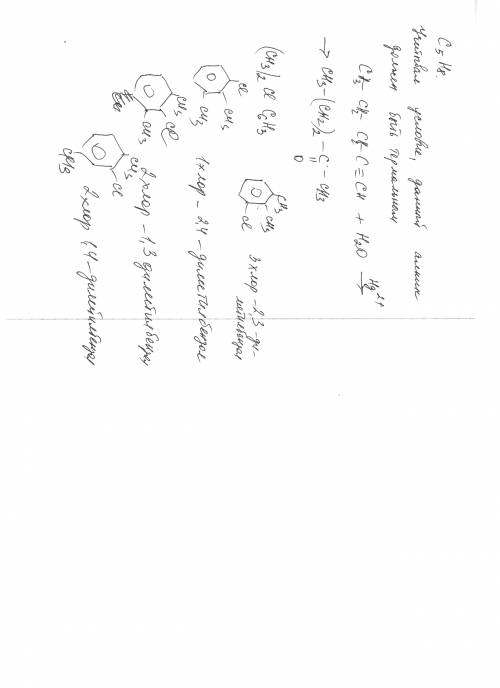 C5H8.
Учитывая условие, данный алкин
должен быть нормальным
CH3 - CH2 - CH2 - C ≡ CH + H2O Hg2+ →
→ CH3 - (CH2)2 - C - CH3
O
(CH3)2 Cl C6H3
CH3
CH3
Cl
3 хлор - 2,3 - ди-
метилбензол
Cl
CH3
CH3
1 хлор - 2,4 - диметилбензол
CH3
Cl
CH3
2 хлор - 1,3 диметилбензол
CH3
Cl
CH3
2 хлор 1,4 - диметилбензол